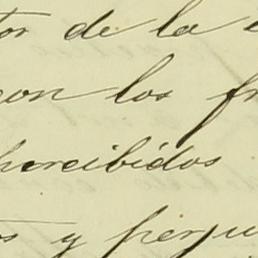 tor de la
con los fr
percibidos
os y perju